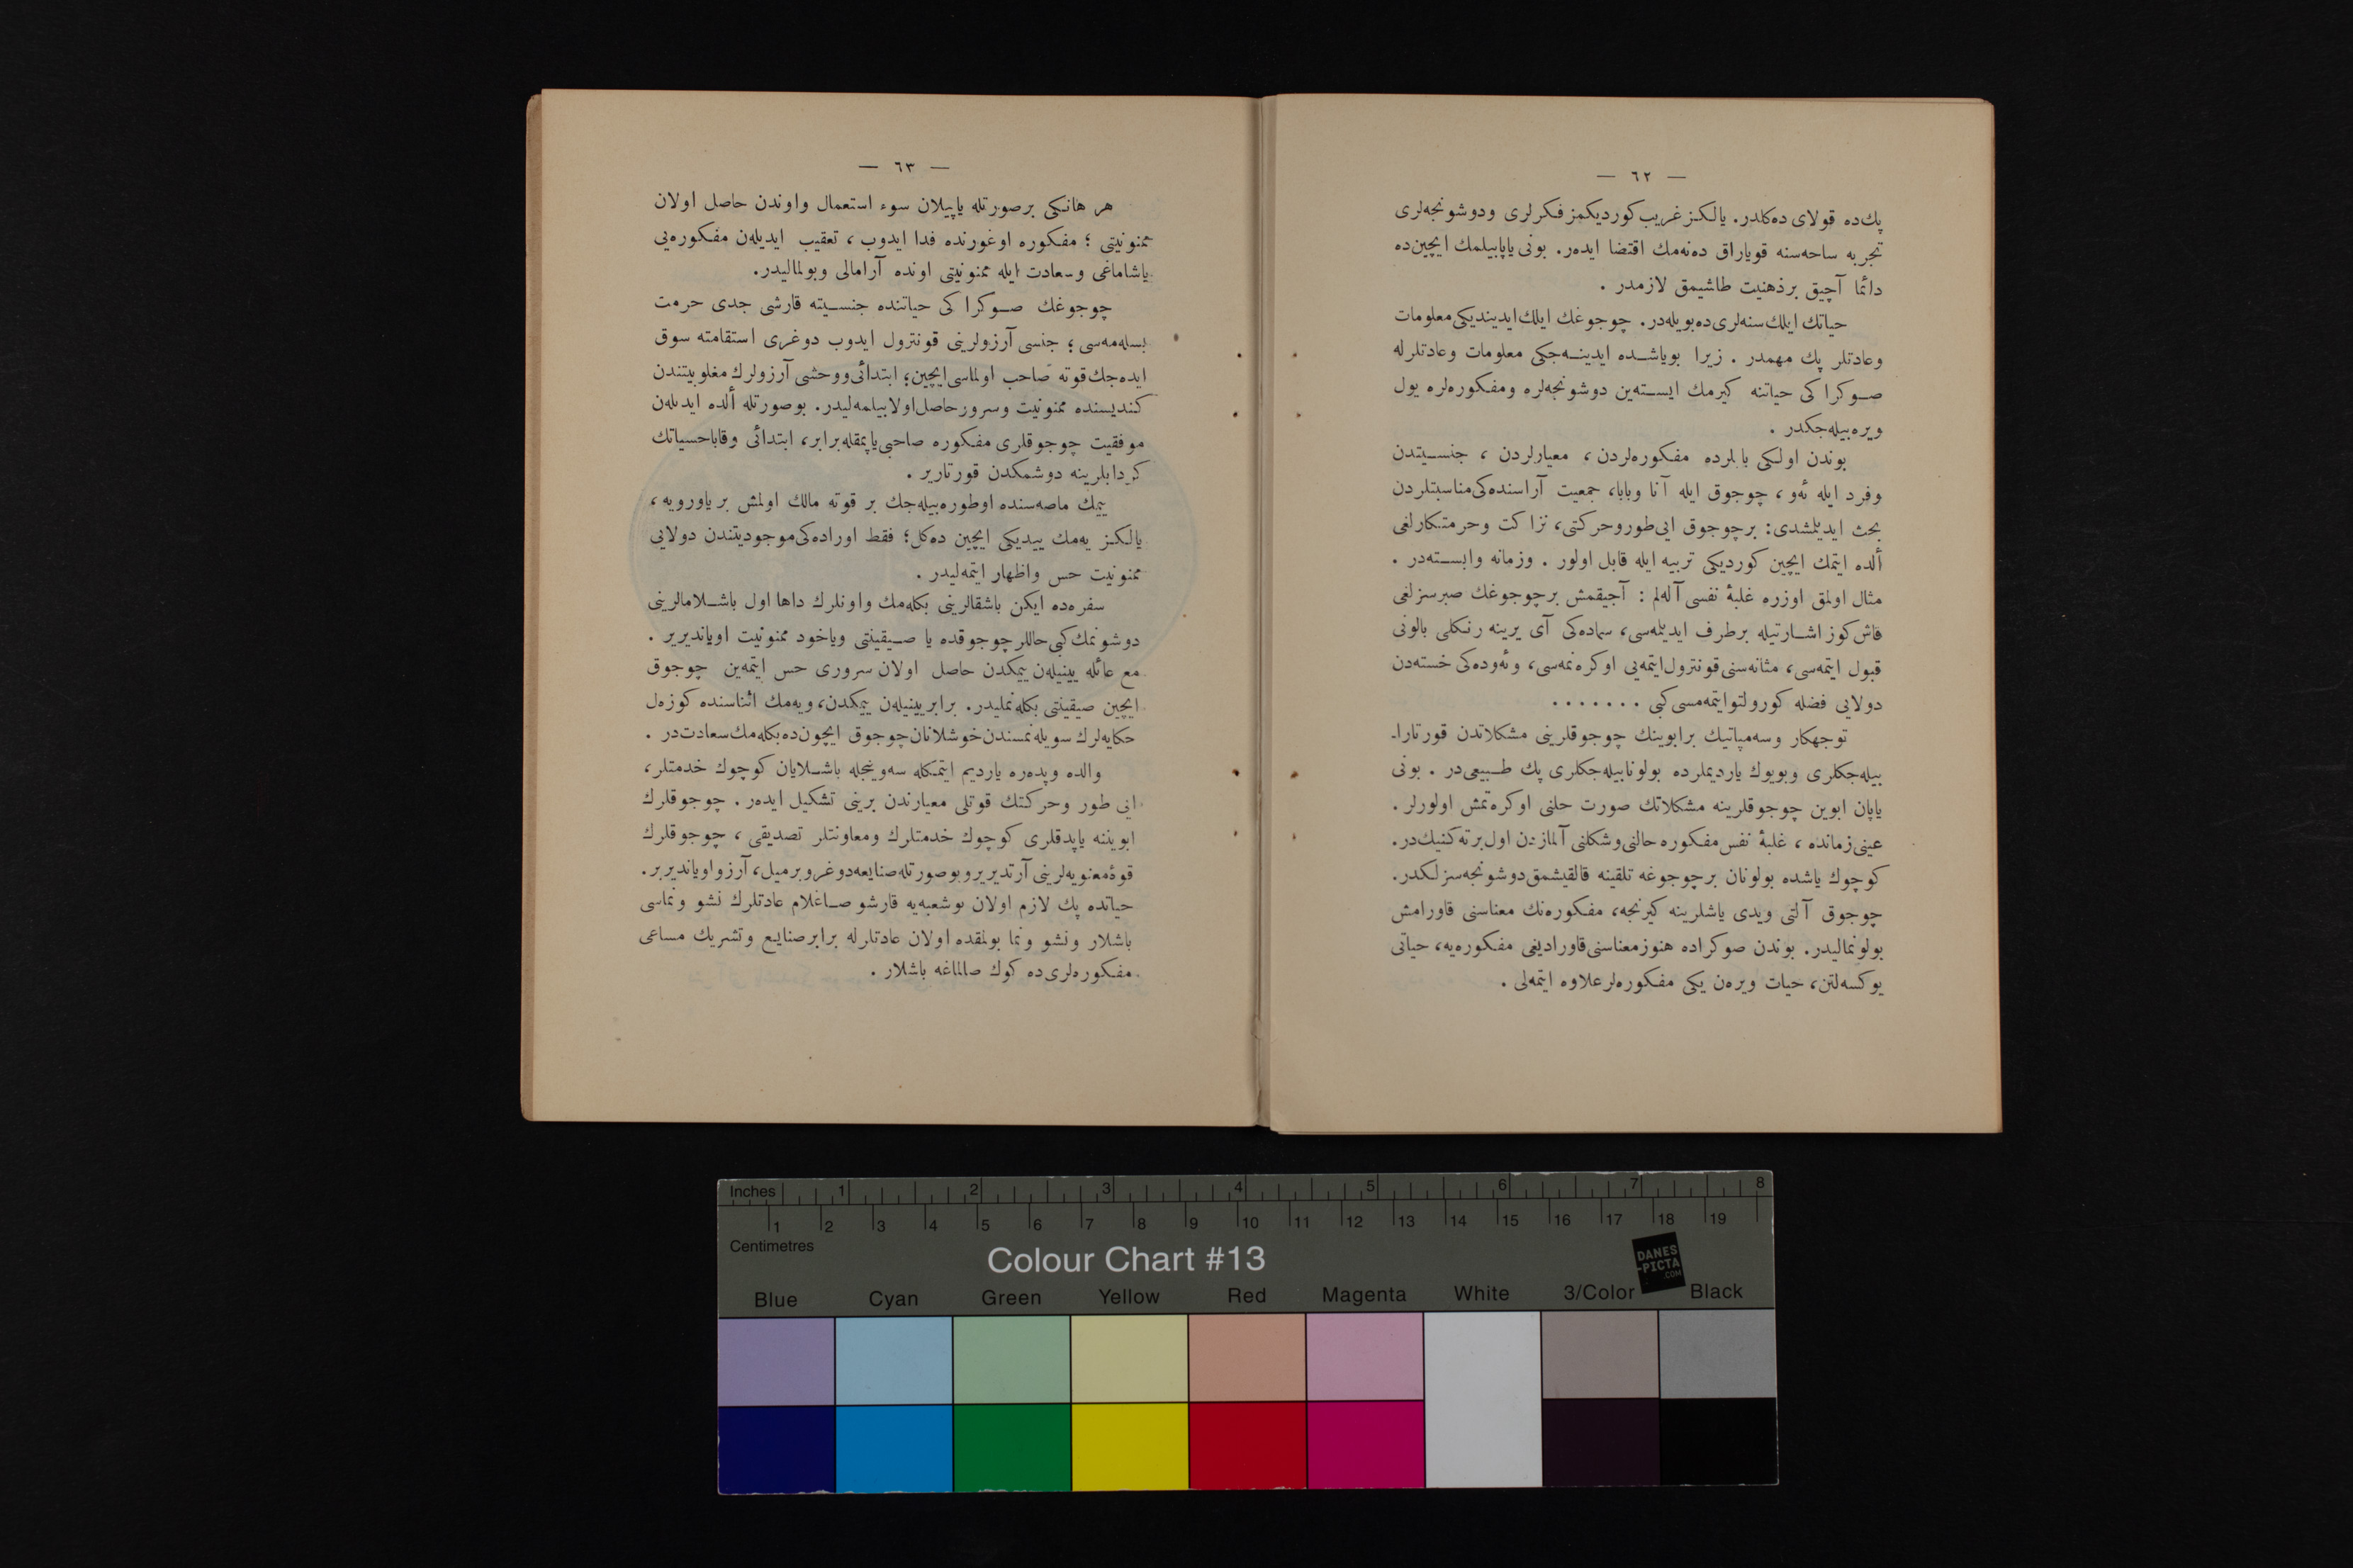 — ٦٢ —
پك‌ده قولای ده‌كلدر. یالكز غریب كوردیكمز فكرلری ودوشونجه‌لری
تجربه ساحه‌سنه قویاراق ده‌نه‌مك اقتضا ایده‌ر. بونی یاپابیلمك ایچین‌ده
دائما آچیق برذهنیت طاشیمق لازمدر .
حیاتك ایلك سنه‌لری ده‌بویله‌در. چوجوغك ایلك ایدیندیكی معلومات
وعادتلر پك مهمدر . زیرا بویاشـده ایدینـه‌جكی معلومات وعادتلرله
صوكرا كی حیاتنه كیرمك ایسته‌ین دوشونجه‌لره ومفكوره‌لره یول
ویره‌بیله‌جكدر .
بوندن اولكی بابلرده مفكوره‌لردن، معیارلردن ، جنسیتدن
وفرد ایله ئه‌و ، چوجوق ایله آنا وبابا، جمعیت آراسنده‌كی مناسبتلردن
بحث ایدیلمشدی: برچوجوق ایی‌طوروحركتی، نزاكت وحرمتكارلغی
ألده ایتمك ایچین كوردیكی تربیه ایله قابل اولور . وزمانه وابسته‌در .
مثال اولمق اوزره غلبۀ نفسی آله‌لم : آجیقمش برچوجوغك صبرسزلغی
قاش كوز اشارتیله برطرف ایدیلمه‌سی، سماده‌كی آی یرینه رنكلی بالونی
قبول ایتمه‌سی، مثانه‌سنی قونترول‌ایتمه‌یی اوكره‌نمه‌سی، وئه‌وده‌كی خسته‌دن
دولایی فضله كورولتوایتمه‌مسی كبی . . . . . . .
توجهكار وسه‌مپاتیك برابوینك چوجوقلرینی مشكلاتدن قورتارا-
بیله‌جكلری وبویوك یاردیملرده بولونابیله‌جكلری پك طبیعی‌در . بونی
یاپان ابوین چوجوقلرینه مشكلاتك صورت حلنی اوكره‌تمش اولورلر .
عینی‌زمانده ، غلبۀ نفس مفكوره حالنی‌وشكلنی آلمازدن اول برته‌كنیك‌در.
كوچوك یاشده بولونان برچوجوغه تلقینه قالقیشمق‌دوشونجه‌سزلكدر.
چوجوق آلتی ویدی یاشلرینه كیرنجه، مفكوره‌نك معناسنی قاورامش
بولونمالیدر. بوندن صوكراده هنوزمعناسنی‌قاورادیغی مفكوره‌یه، حیاتی
یوكسه‌لتن، حیات ویره‌ن یكی مفكوره‌لرعلاوه ایتمه‌لی .
— ٦٣ —
هر هانكی برصورتله یاپیلان سوء استعمال واوندن حاصل اولان
ممنونیتی ؛ مفكوره اوغورنده فدا ایدوب ، تعقیب ایدیله‌ن مفكوره‌یی
یاشاماغی وسعادت ایله ممنونیتی اونده آرامالی وبولمالیدر.
چوجوغك صوكرا كی حیاتنده جنسیته قارشی جدی حرمت
بسله‌مه‌سی ؛ جنسی آرزولرینی قونترول ایدوب دوغری استقامته سوق
ایده‌جك قوته صاحب اولماسی ایچین؛ ابتدائی‌ووحشی آرزولرك مغلوبیتندن
كندیسنده ممنونیت وسرورحاصل‌اولابیلمه‌لیدر. بوصورتله ألده ایدیله‌ن
موفقیت چوجوقلری مفكوره صاحبی‌یاپمقله‌برابر، ابتدائی وقاباحسیاتك
كردابلرینه دوشمكدن قورتاریر .
ییمك ماصه‌سنده اوطوره‌بیله‌جك بر قوته مالك اولمش بر یاورویه ،
یالكز یه‌مك ییدیكی ایچین ده‌كل؛ فقط اوراده‌كی‌موجودیتندن دولایی
ممنونیت حس واظهار ایتمه‌لیدر .
سفره‌ده ایكن باشقالرینی بكله‌مك واونلرك داها اول باشلامالرینی
دوشونمك كبی حاللر چوجوقده یا صیقینتی ویاخود ممنونیت اویاندیریر .
مع عائله یینیله‌ن ییمكدن حاصل اولان سروری حس ایتمه‌ین چوجوق
ایچین صیقینتی بكله‌نملیدر. برابریینیله‌ن ییمكدن، ویه‌مك اثناسنده كوزه‌ل
حكایه‌لرك سویله‌نمسندن‌خوشلانان‌چوجوق ایچون‌ده‌بكله‌مك‌سعادت‌در .
والده وپدره یاردیم ایتمكله سه‌وینجله باشلایان كوچوك خدمتلر،
ایی طور وحركتك قوتلی معیارندن برینی تشكیل ایده‌ر . چوجوقلرك
ابویننه یاپدقلری كوچوك خدمتلرك ومعاونتلر تصدیقی ، چوجوقلرك
قوۀمعنویه‌لرینی آرتدیریروبوصورتله‌صنایعه‌دوغروبرمیل، آرزواویاندیریر.
حیاتده پك لازم اولان بوشعبه‌یه قارشو صاغلام عادتلرك نشو ونماسی
باشلار ونشو ونما بولمقده اولان عادتلرله برابرصنایع وتشریك مساعی
مفكوره‌لری‌ده كوك صالماغه باشلار .
Inches 1 2 3 4 5 6 7 8
1 2 3 4 5 6 7 8 9 10 11 12 13 14 15 16 17 18 19
Centimetres
Colour Chart #13
DANES
-PICTA
.COM
Blue Cyan Green Yellow Red Magenta White 3/Color Black